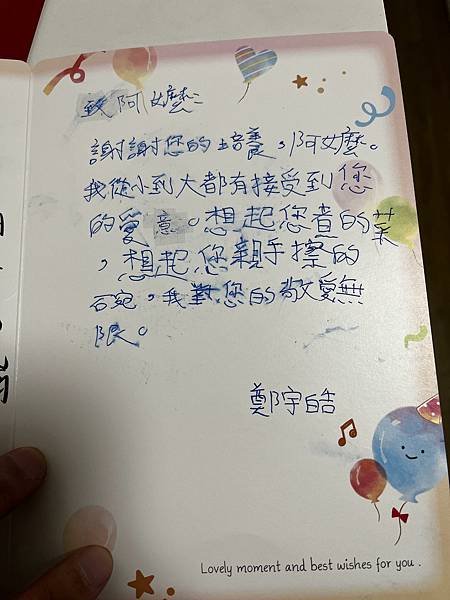 致阿嬤:
謝謝您的培養,阿嬤。
我從小到大都有接受到您
的愛意。想起您煮的菜
,想起您親手擦的
碗,我對您的敬愛無
限。
鄭宇皓
Lovely moment and best wishes for you .